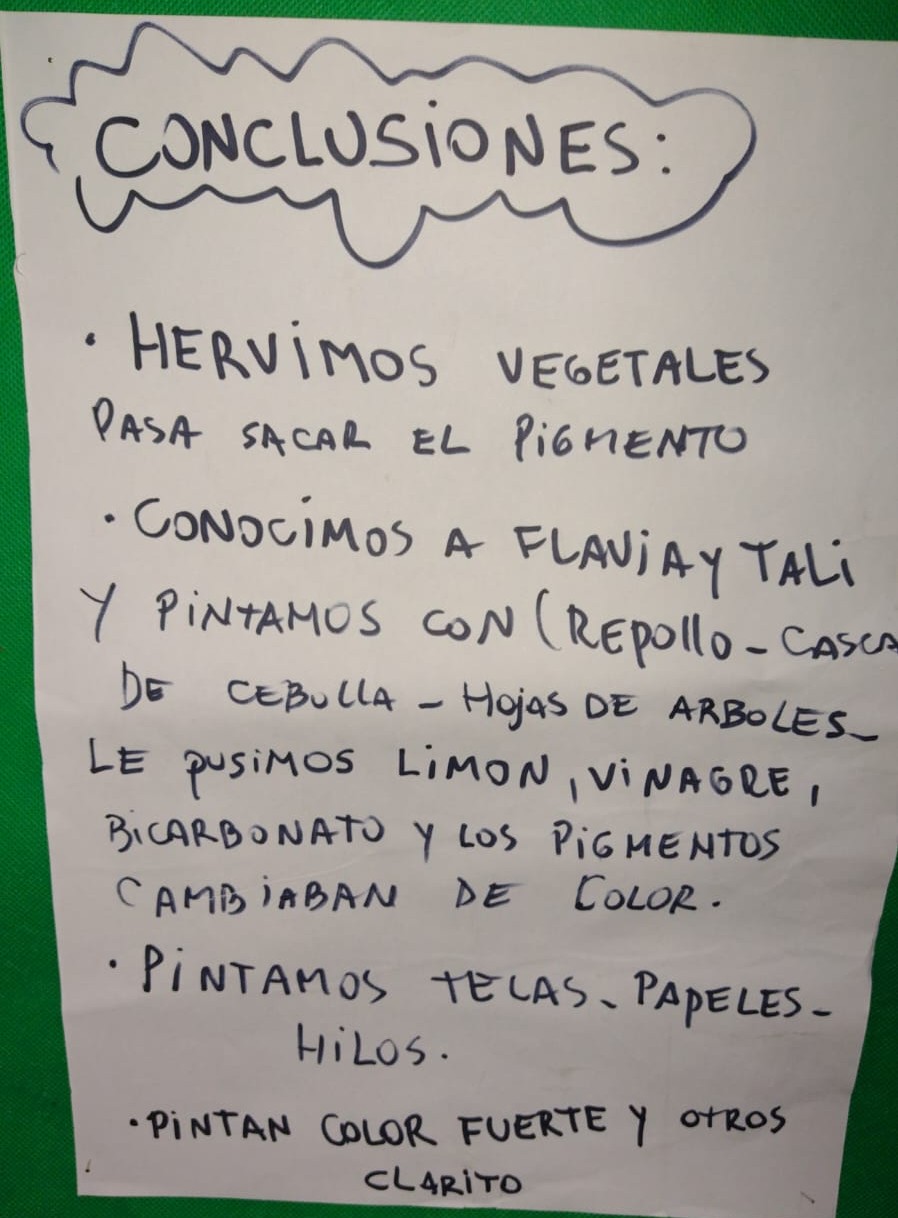 CONCLUSIONES:
• HERVIMOS VEGETALES
PASA SACAR EL PIGMENTO
• CONOCIMOS A FLAVIA Y TALI
Y PINTAMOS CON (REPOLLO - CASCA
DE CEBOLLA - HOJAS DE ARBOLES -
LE PUSIMOS LIMON, VINAGRE,
BICARBONATO Y LOS PIGMENTOS
CAMBIABAN DE COLOR.
• PINTAMOS TELAS - PAPELES -
HILOS.
• PINTAN COLOR FUERTE Y OTROS
CLARITO